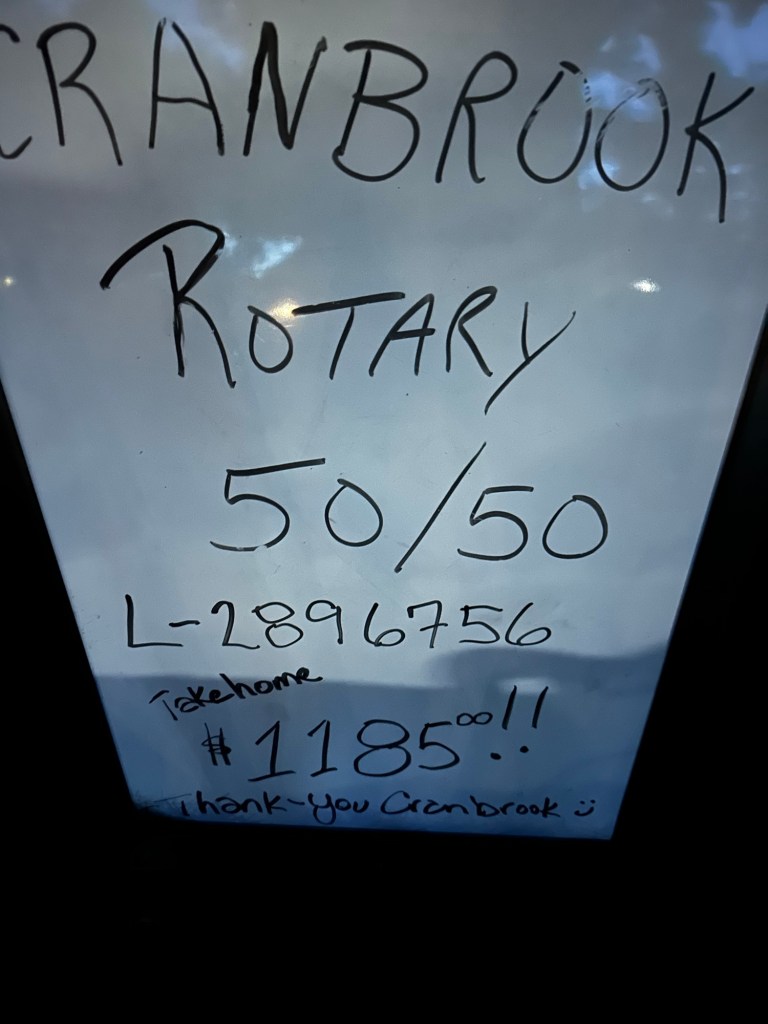 CRANBROOK
ROTARY
50/50
L-2896756
Takehome
$1185⁰⁰!!
Thank-you Cranbrook :)